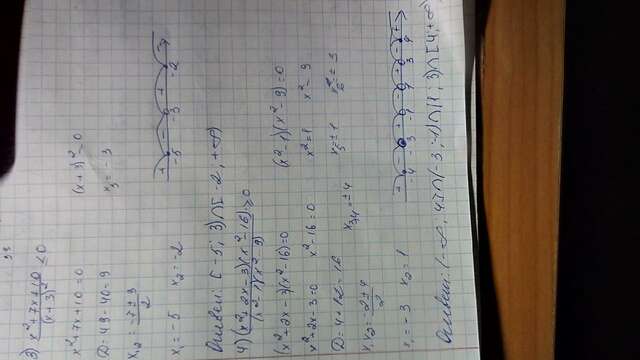 3) x²+7x+10 / (x+3)² ≤ 0
x²+7x+10=0 (x+3)²=0
D=49-40=9 x₃=-3
x₁,₂= -7±3 / 2
x₁=-5 x₂=-2
-5 -3 -2
Ответ: [-5; 3)∩[-2; +∞)
4) (x²+2x-3)(x²-16) / (x²-1)(x²-9) ≥0
(x²-2x-3)(x²-16)=0 (x²-1)(x²-9)=0
x²+2x-3=0 x²-16=0 x²=1 x²=9
D=4+12=16
x₁,₂= -2±4 / 2 x₃,₄=±4
x₁=-3 x₂=1
-4 -3 -1 1 3